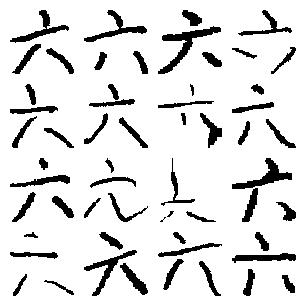 六六六六
六六六六
六六六六
六六六六